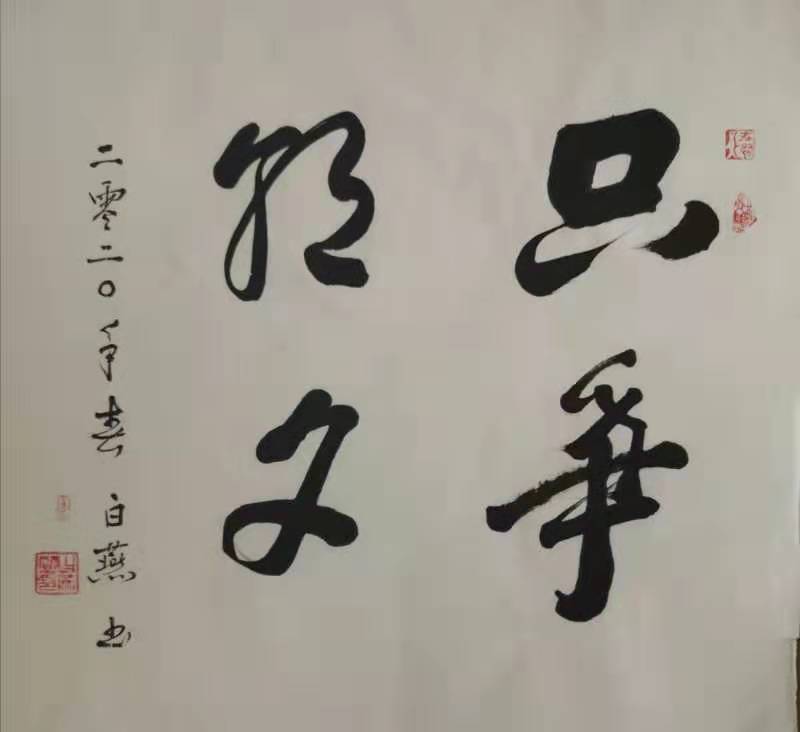 只争
朝夕
二零二〇年春 白燕书